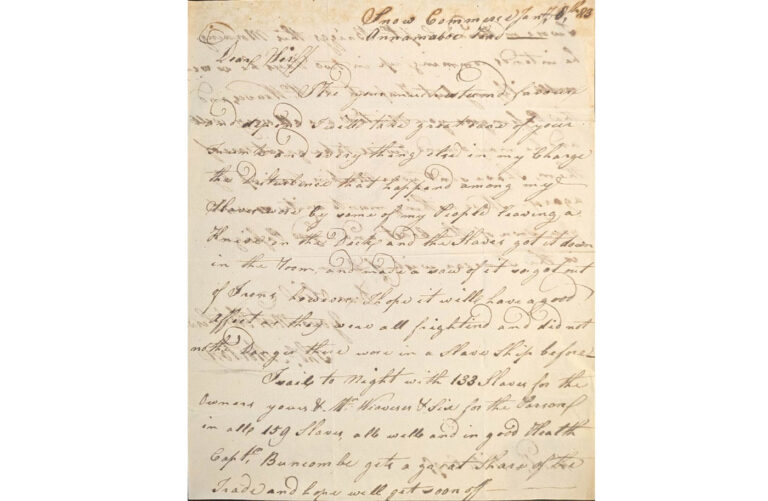 Snow Commerce Janry 8th 83
Annamaboe Road
Dear Sheriff
This you and
depend I will take great care of your
and every thing else in my Charge
the Disturbence that happand among my
Slaves were by some of my People leaving a
Knife in the Deck, and the Slaves got it down
in the Room, and made a saw of it so got out
of Irons, however I hope it will have a good
affect as they were all frightind and did not
the Danger there were in a Slave Ship before
I sail to Night with 133 Slaves for the
Owners yours & Mr Weavers & Six for the
in all 159 Slaves, all well and in good Health
Captn Buncombe gets a great Share of the
Trade and hope will get soon off